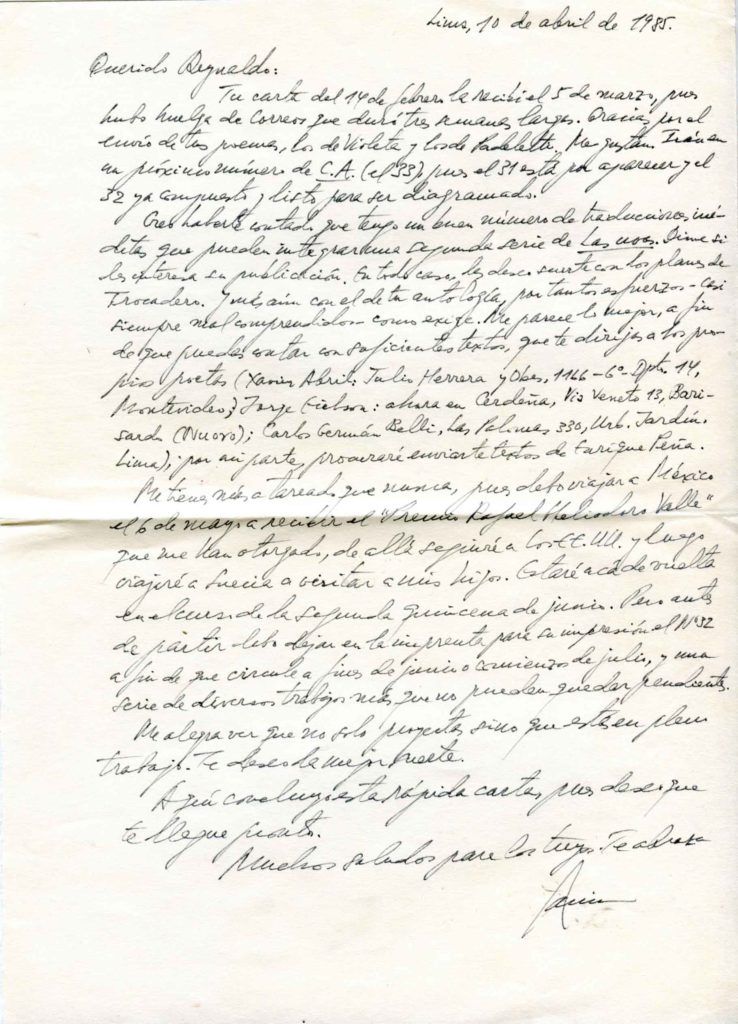 Lima, 10 de abril de 1985.
Querido Reynaldo:
Tu carta del 14 de febrero la recibí el 5 de marzo, pues
hubo huelga de Correos que duró tres semanas largas. Gracias por el
envío de tus poemas, los de Violeta y los de Padeletti. Me gustan. Irán en
un próximo número de C.A. (el 33), pues el 31 está por aparecer y el
32 ya compuesto y listo para ser diagramado.
Creo haberte contado que tengo un buen número de traducciones iné-
ditas que pueden integrar una segunda serie de Las uvas. Dime si
les interesa su publicación. En todo caso, les deseo suerte con los planes de
Trocadero. Y más aún con el de tu antología, por tantos esfuerzos - casi
siempre mal comprendidos - como exige. Me parece lo mejor, a fin
de que puedas contar con suficientes textos, que te dirijas a los pro-
pios poetas (Xavier Abril: Julio Herrera y Obes, 1166 - 6º - Dpto. 14,
Montevideo; Jorge Eielson: ahora en Cerdeña, Via Veneto 13, Bari-
sardo (Nuoro); Carlos Germán Belli, Las Palomas 330, Urb. Jardín.
Lima); por mi parte, procuraré enviarte textos de Enrique Peña.
Me tienes más atareado que nunca, pues debo viajar a México
el 6 de mayo a recibir el "Premio Rafael Heliodoro Valle"
que me han otorgado, de allí seguiré a los EE.UU. y luego
viajaré a Suecia a visitar a mis hijos. Estaré acá de vuelta
en el curso de la segunda quincena de junio. Pero antes
de partir debo dejar en la imprenta para su impresión el Nº 32
a fin de que circule a fines de junio o comienzos de julio, y una
serie de diversos trabajos más que no pueden quedar pendientes.
Me alegra ver que no solo proyectas sino que estás en pleno
trabajo. Te deseo la mejor suerte.
Aquí concluyo esta rápida carta, pues deseo que
te llegue pronto.
Muchos saludos para los tuyos. Te abraza